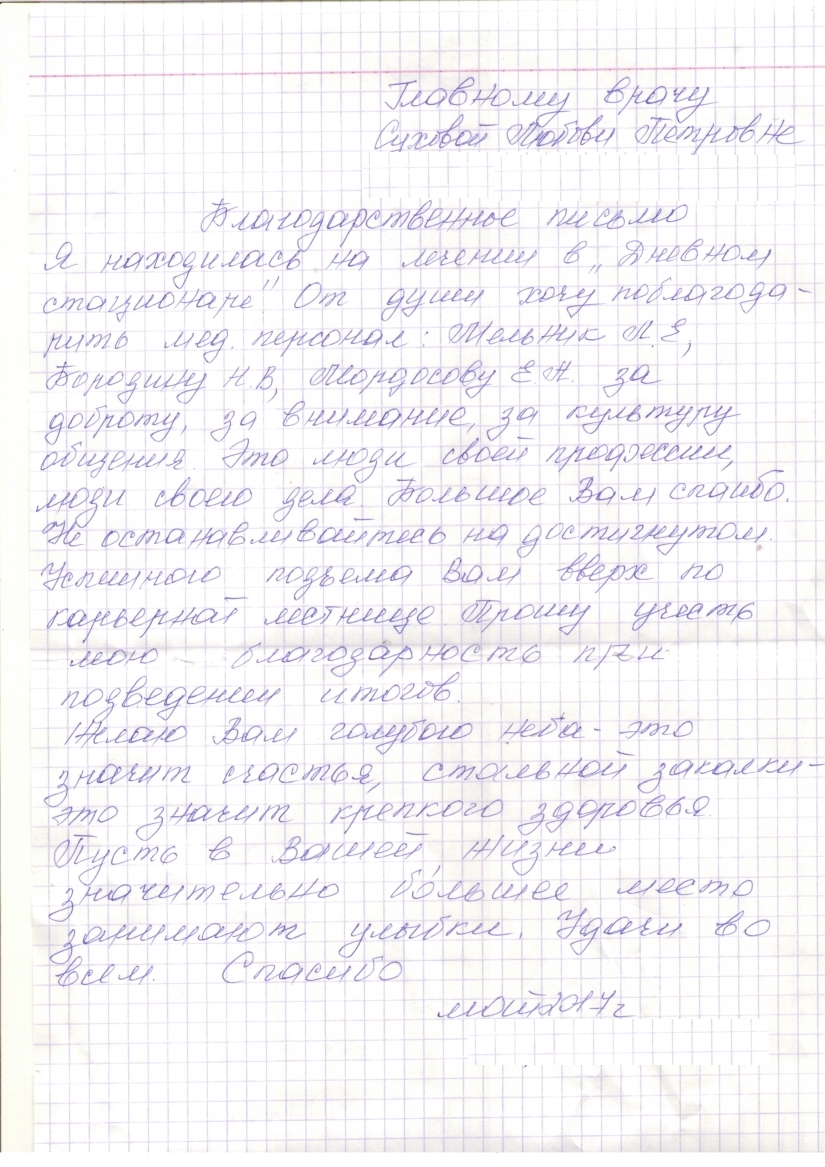 Главному врачу
Суховой Любови Петровне
Благодарственное письмо
Я находилась на лечении в „Дневном
стационаре" От души хочу поблагода-
рить мед. персонал: Мельник Л.Е,
Бородину Н.В, Мордосову Е.А. за
доброту, за внимание, за культуру
общения. Это люди своей профессии,
люди своего дела. Большое Вам спасибо.
Не останавливайтесь на достигнутом.
Успешного подъема Вам вверх по
карьерной лестнице. Прошу учесть
мою благодарность при
подведении итогов.
Желаю Вам голубого неба - это
значит счастья, стальной закалки -
это значит крепкого здоровья.
Пусть в Вашей жизни
значительно бо́льшее место
занимают улыбки. Удачи во
всем. Спасибо
май 2017г